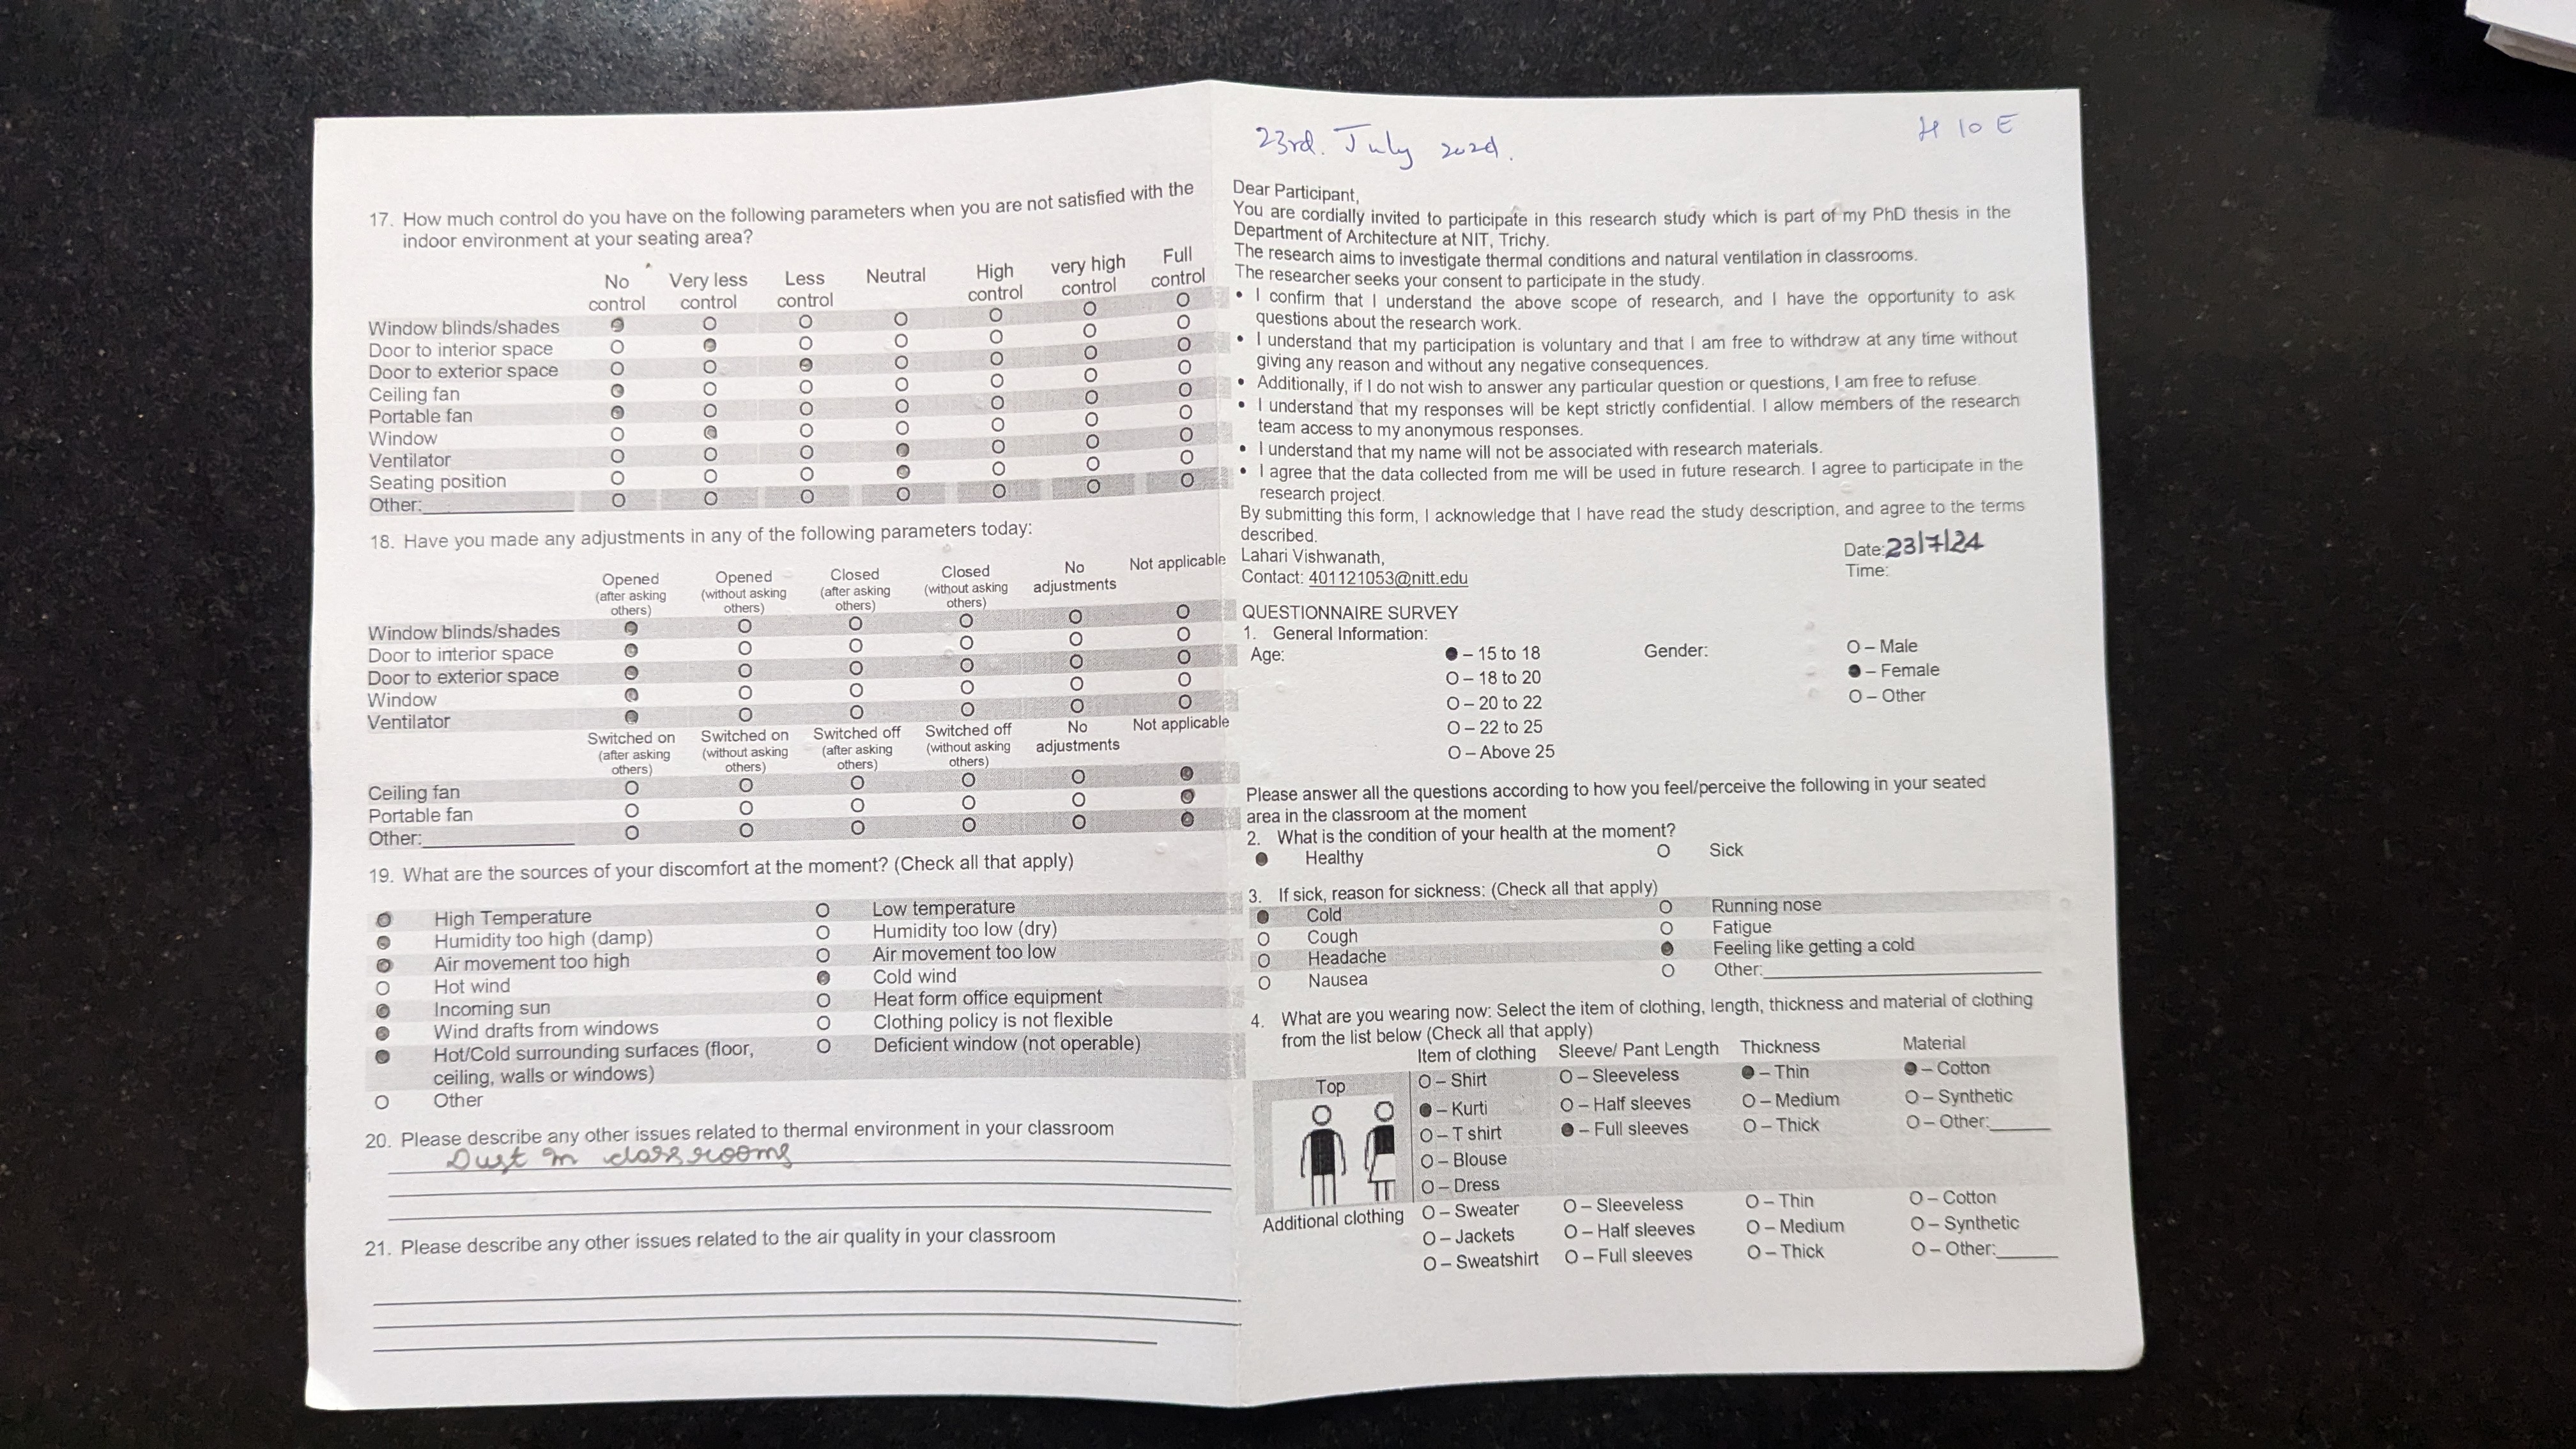 17. How much control do you have on the following parameters when you are not satisfied with the
indoor environment at your seating area?
No control Very less control Less control Neutral High control very high control Full control
Window blinds/shades
Door to interior space
Door to exterior space
Ceiling fan
Portable fan
Window
Ventilator
Seating position
Other:
18. Have you made any adjustments in any of the following parameters today:
Opened (after asking others) Opened (without asking others) Closed (after asking others) Closed (without asking others) No adjustments Not applicable
Window blinds/shades
Door to interior space
Door to exterior space
Window
Ventilator
Switched on (after asking others) Switched on (without asking others) Switched off (after asking others) Switched off (without asking others) No adjustments Not applicable
Ceiling fan
Portable fan
Other:
19. What are the sources of your discomfort at the moment? (Check all that apply)
High Temperature Low temperature
Humidity too high (damp) Humidity too low (dry)
Air movement too high Air movement too low
Hot wind Cold wind
Incoming sun Heat form office equipment
Wind drafts from windows Clothing policy is not flexible
Hot/Cold surrounding surfaces (floor, Deficient window (not operable)
ceiling, walls or windows)
Other
20. Please describe any other issues related to thermal environment in your classroom
Dust in classrooms
21. Please describe any other issues related to the air quality in your classroom
23rd. July 2024.
H 10 E
Dear Participant,
You are cordially invited to participate in this research study which is part of my PhD thesis in the
Department of Architecture at NIT, Trichy.
The research aims to investigate thermal conditions and natural ventilation in classrooms.
The researcher seeks your consent to participate in the study.
• I confirm that I understand the above scope of research, and I have the opportunity to ask
questions about the research work.
• I understand that my participation is voluntary and that I am free to withdraw at any time without
giving any reason and without any negative consequences.
• Additionally, if I do not wish to answer any particular question or questions, I am free to refuse.
• I understand that my responses will be kept strictly confidential. I allow members of the research
team access to my anonymous responses.
• I understand that my name will not be associated with research materials.
• I agree that the data collected from me will be used in future research. I agree to participate in the
research project.
By submitting this form, I acknowledge that I have read the study description, and agree to the terms
described.
Lahari Vishwanath, Date:23/7/24
Contact: 401121053@nitt.edu Time:
QUESTIONNAIRE SURVEY
1. General Information:
Age: – 15 to 18 Gender: O – Male
O – 18 to 20 – Female
O – 20 to 22 O – Other
O – 22 to 25
O – Above 25
Please answer all the questions according to how you feel/perceive the following in your seated
area in the classroom at the moment
2. What is the condition of your health at the moment?
Healthy Sick
3. If sick, reason for sickness: (Check all that apply)
Cold Running nose
Cough Fatigue
Headache Feeling like getting a cold
Nausea Other:
4. What are you wearing now: Select the item of clothing, length, thickness and material of clothing
from the list below (Check all that apply)
Item of clothing Sleeve/ Pant Length Thickness Material
Top O – Shirt O – Sleeveless – Thin – Cotton
– Kurti O – Half sleeves O – Medium O – Synthetic
O – T shirt – Full sleeves O – Thick O – Other:
O – Blouse
O – Dress
Additional clothing O – Sweater O – Sleeveless O – Thin O – Cotton
O – Jackets O – Half sleeves O – Medium O – Synthetic
O – Sweatshirt O – Full sleeves O – Thick O – Other: